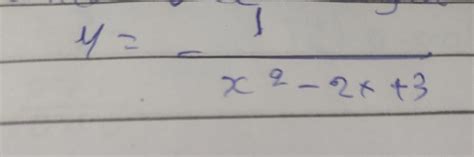 y = 1
x² - 2x + 3